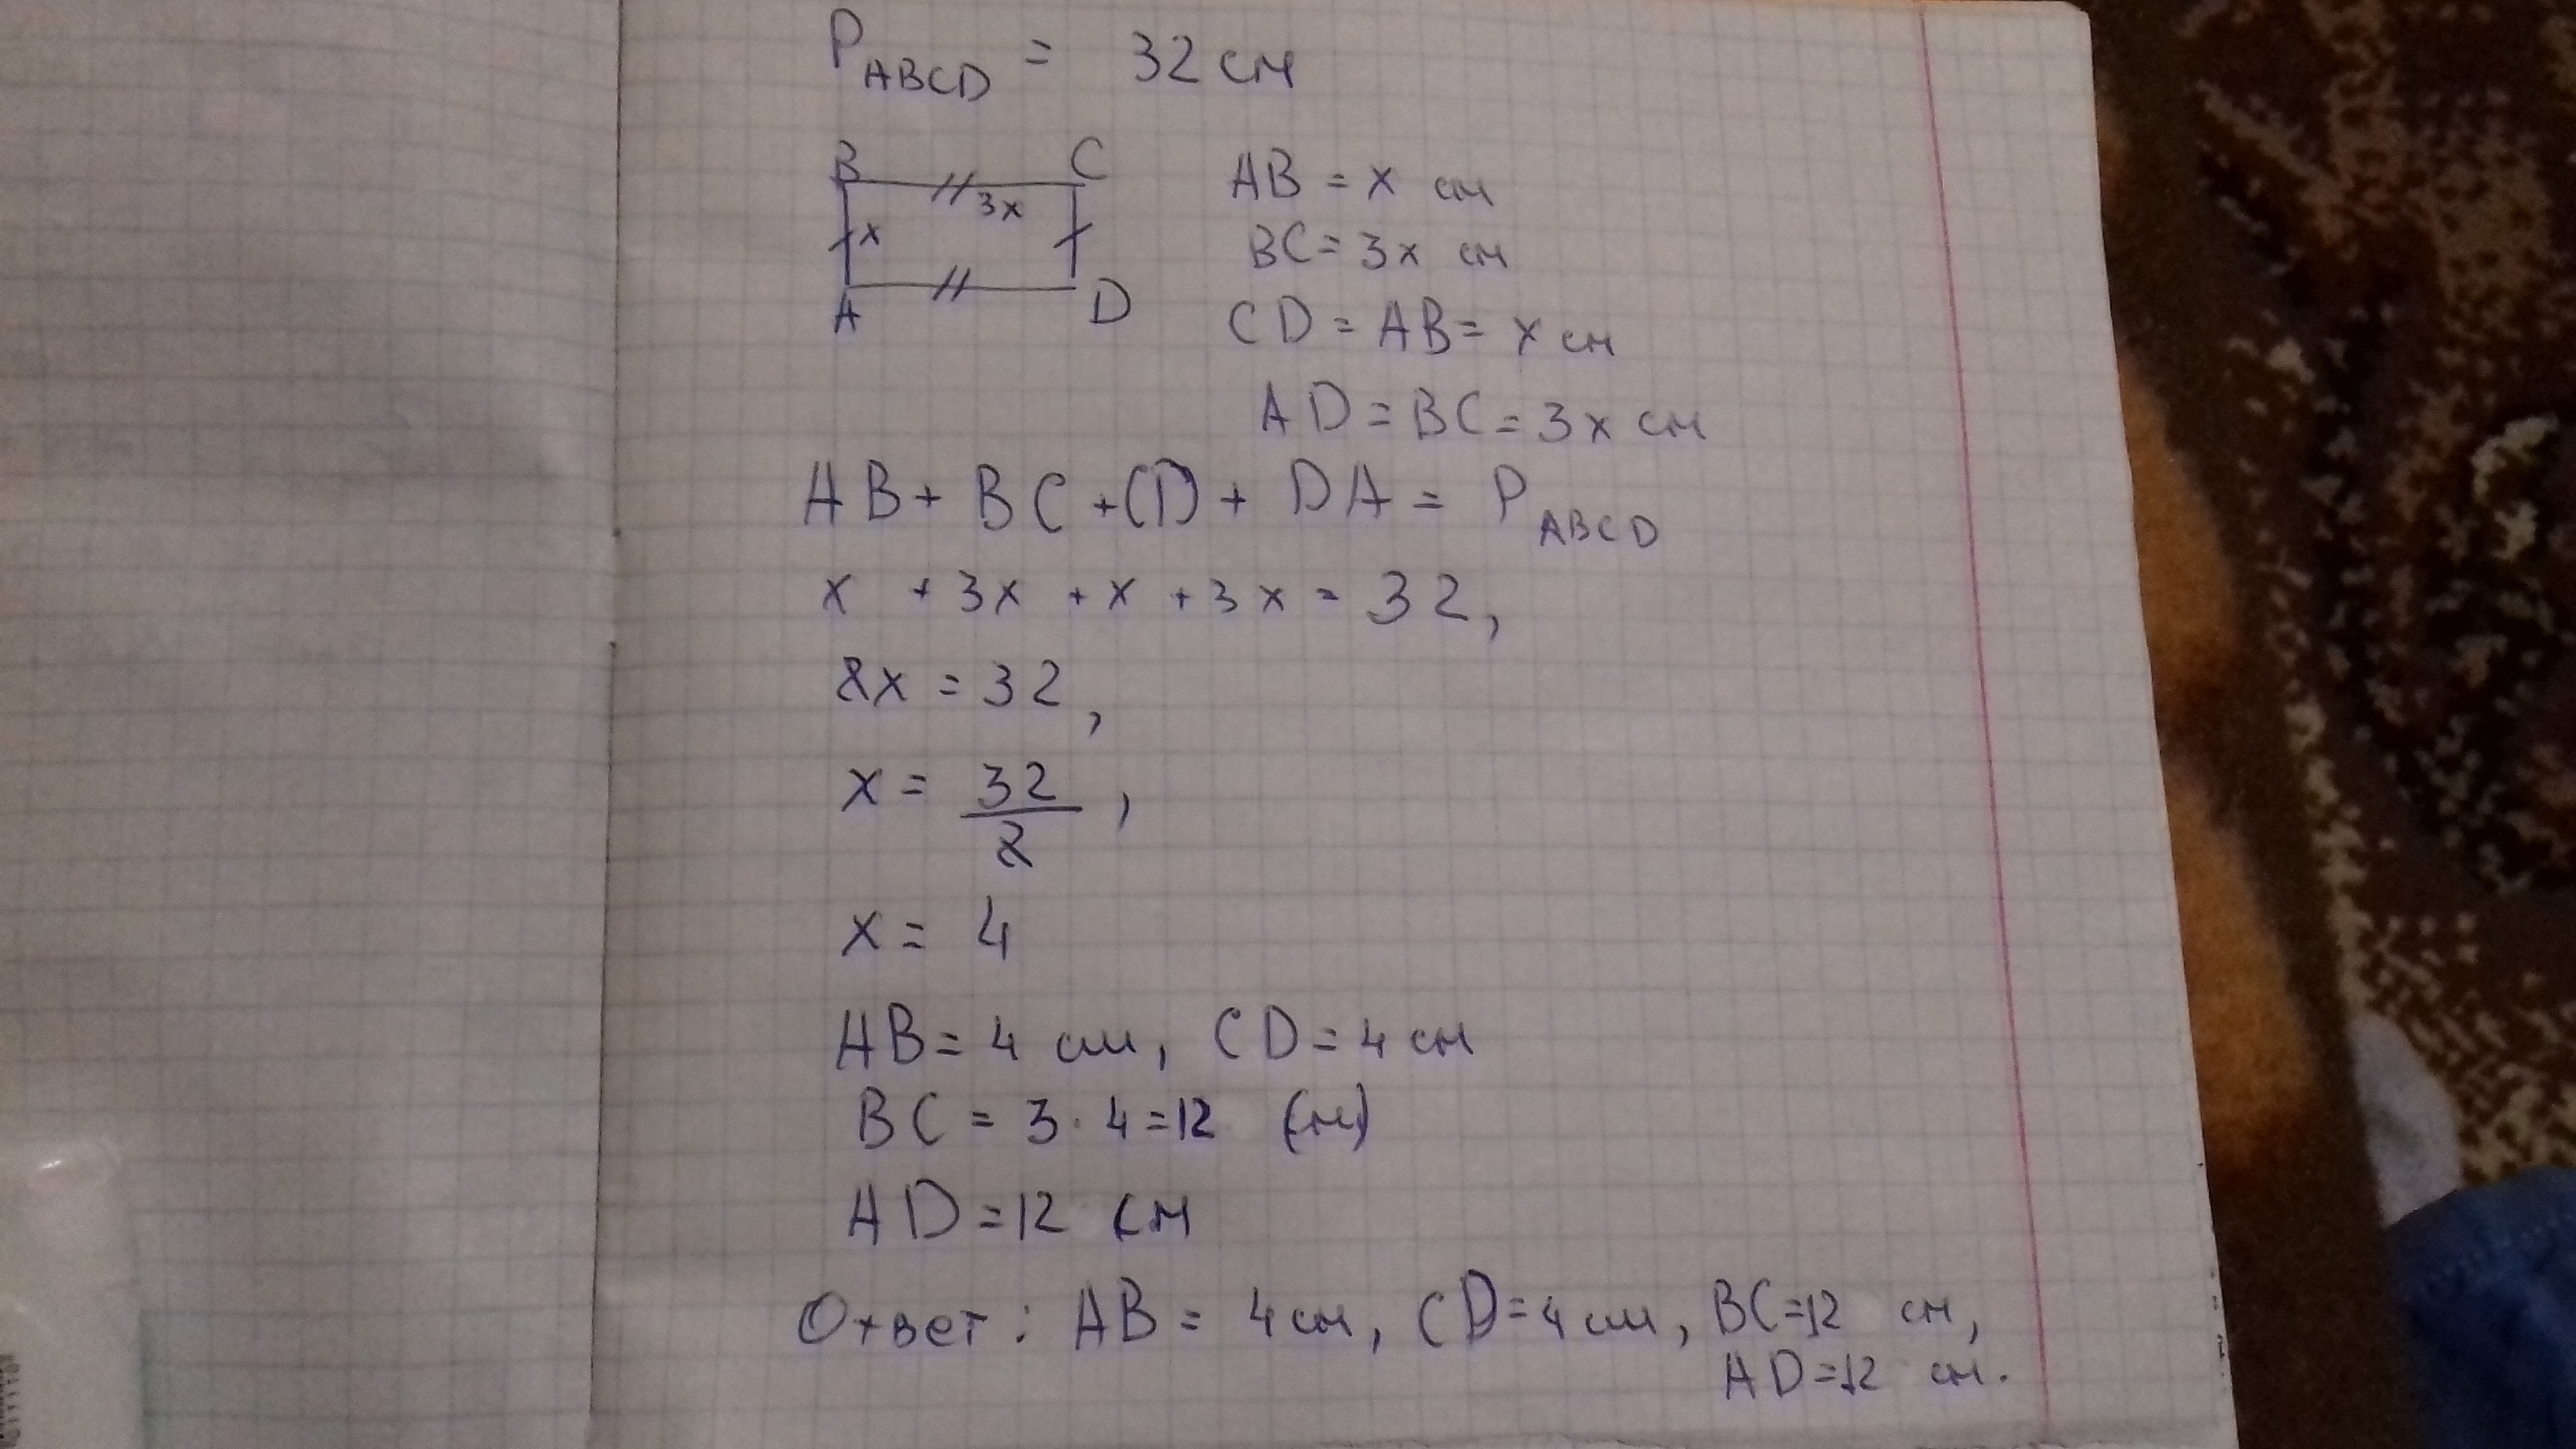 P ABCD = 32 см
B C
3x
x
A D
AB = x см
BC = 3x см
CD = AB = x см
AD = BC = 3x см
AB + BC + CD + DA = P ABCD
x + 3x + x + 3x = 32,
8x = 32,
x = 32/8,
x = 4
AB = 4 см, CD = 4 см
BC = 3 · 4 = 12 (см)
AD = 12 см
Ответ: AB = 4 см, CD = 4 см, BC = 12 см,
AD = 12 см.